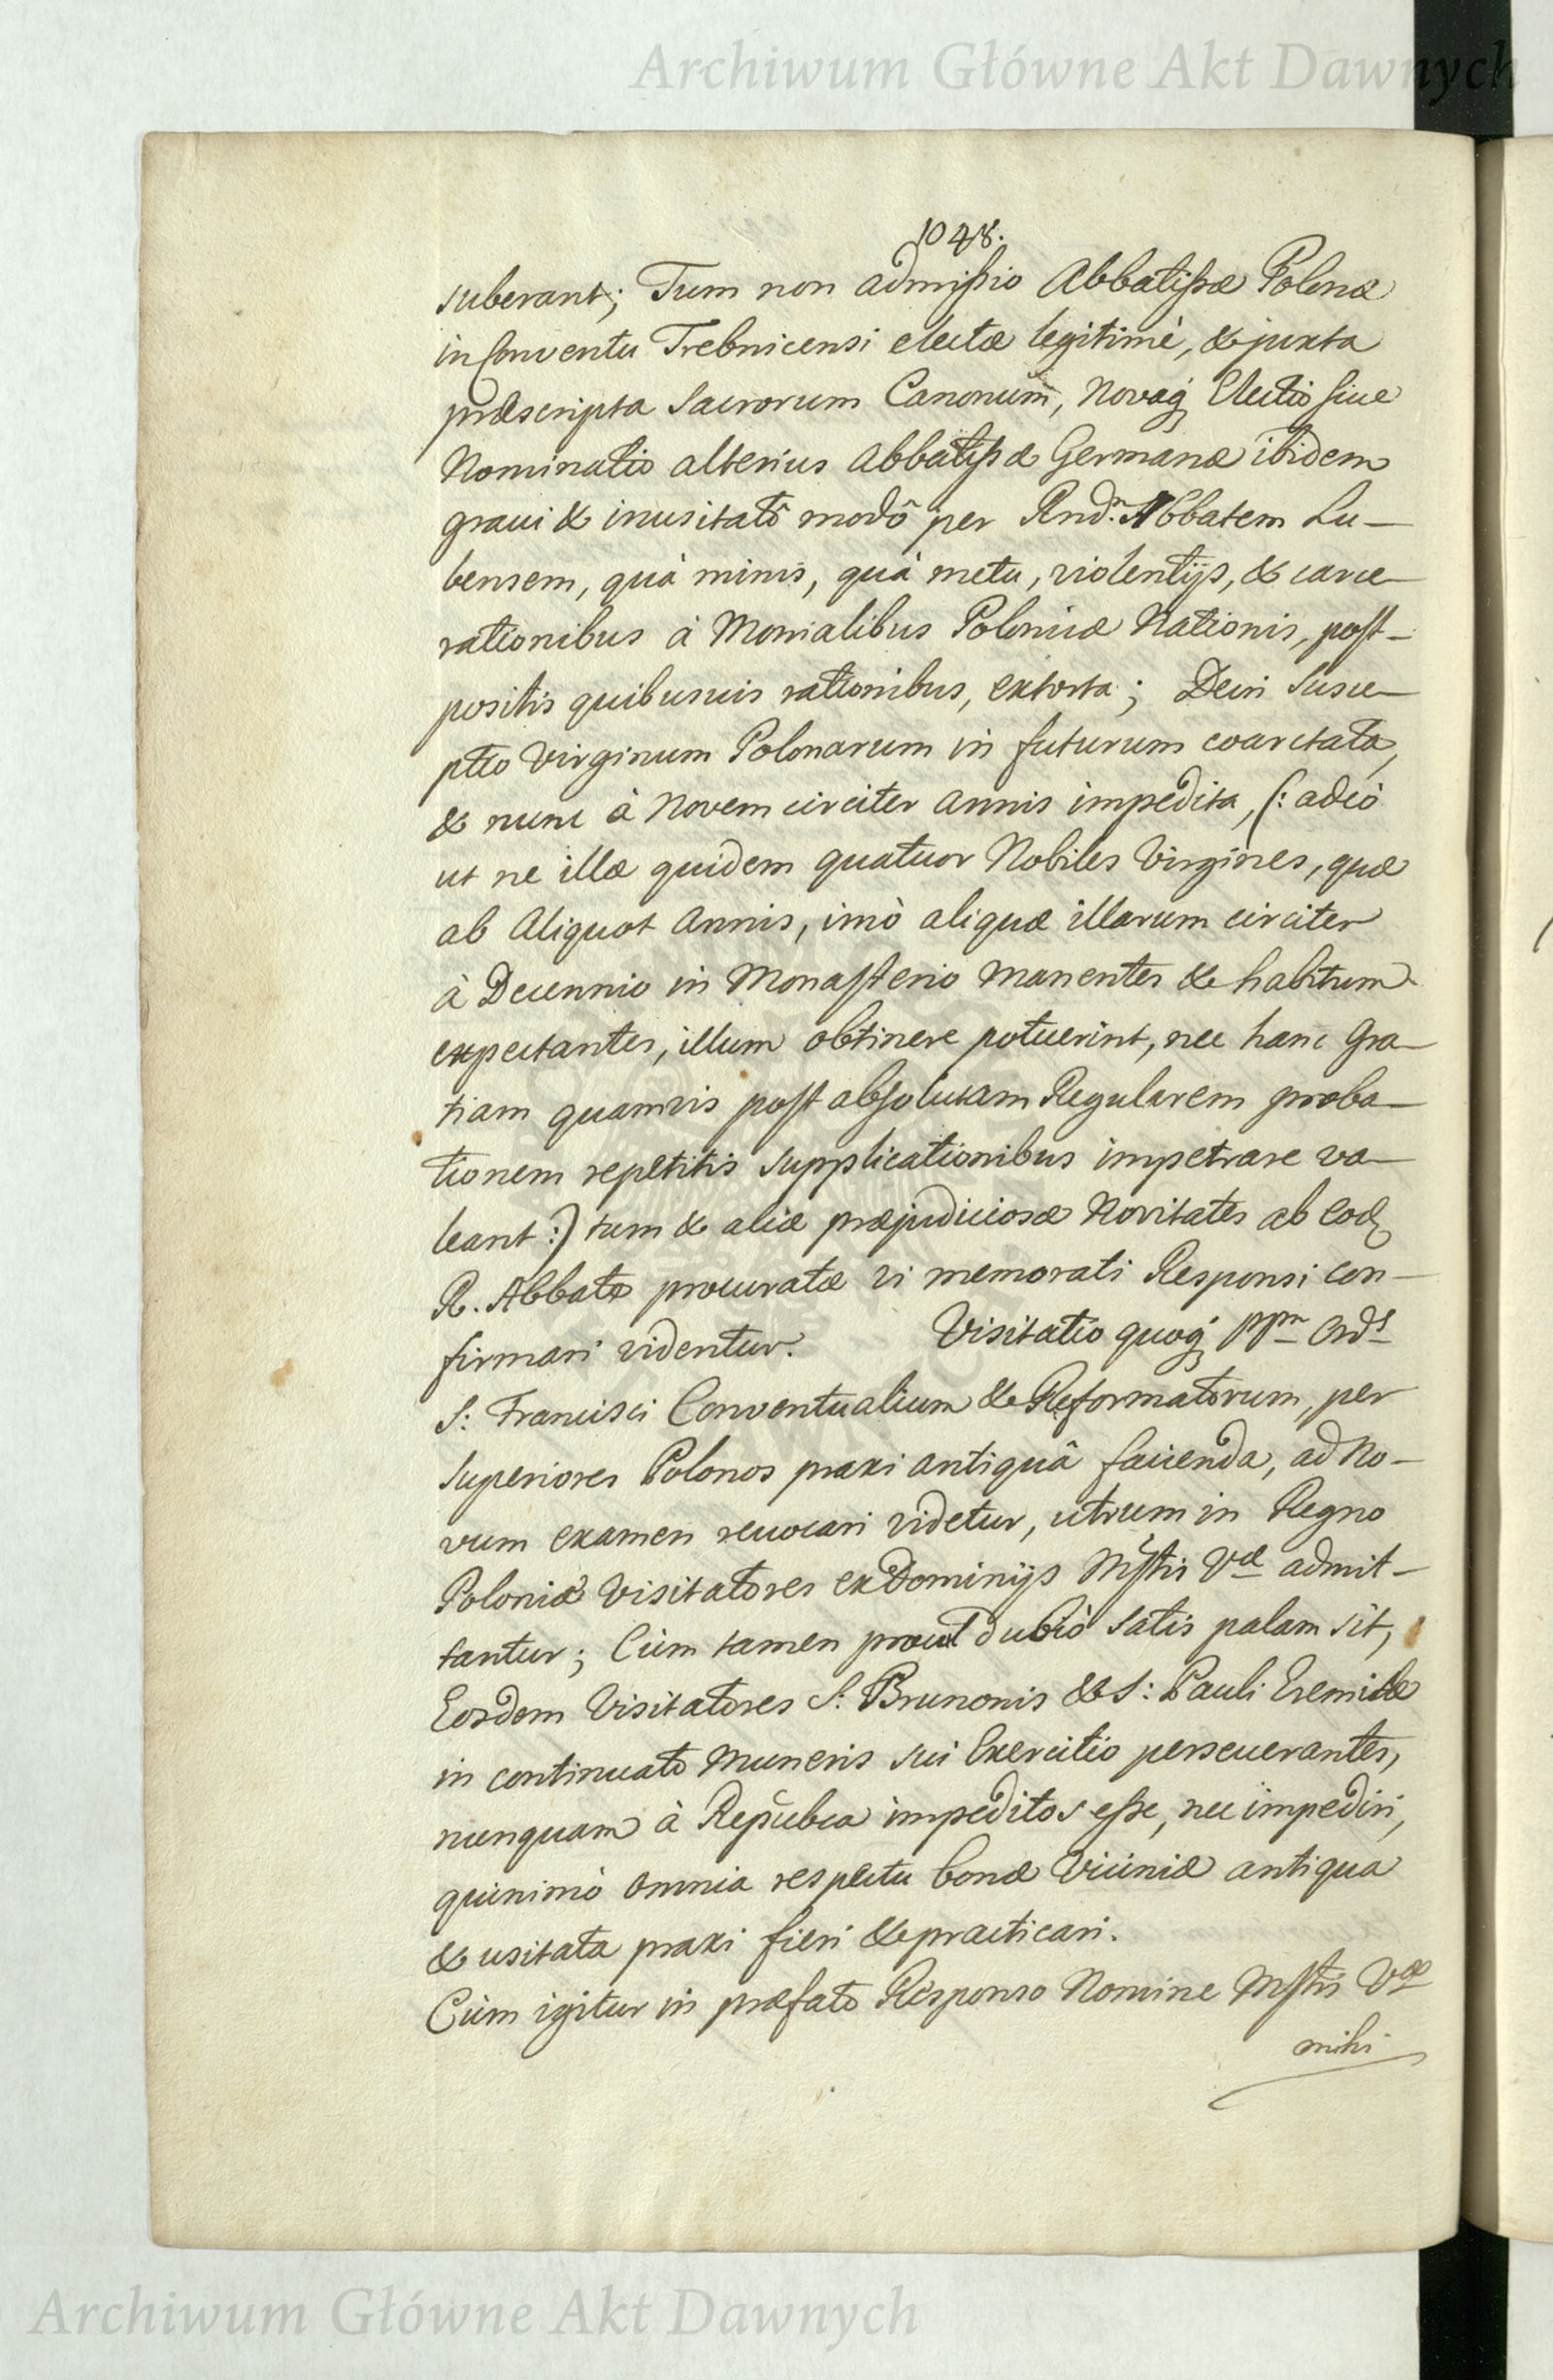 Archiwum Główne Akt Dawnych
1048.
suberant; Tum non admissio Abbatissæ Polonæ
in Conventu Trebnicensi electæ legitimè, & juxta
præscripta Sacrorum Canonum, Novaq; Electio siue
Nominatio alterius Abbatissæ Germanæ ibidem
graui & inusitatô modô per Rnd.m Abbatem Lu-
bensem, quà minis, quà metu, violentijs, & carce-
rationibus à Monialibus Polonicæ Nationis, post-
positis quibusuis rationibus, extorta; Dein Susce-
ptio Virginum Polonarum in futurum coarctata,
& nunc à Novem circiter Annis impedita, (: adeò
ut ne illæ quidem quatuor Nobiles Virgines, quæ
ab Aliquot Annis, imò aliquæ illarum circiter
à Decennio in Monasterio Manentes & habitum
expectantes, illum obtinere potuerint, nec hanc Gra-
tiam quamvis post absolutam Regularem proba-
tionem repetitis supplicationibus impetrare va-
leant :) tum & aliæ præjudiciosæ Novitates ab eod
R. Abbate procuratæ vi memorati Responsi con-
firmari videntur. Visitatio quoq; PPm Ords
S: Francisci Conventualium & Reformatorum, per
Superiores Polonos praxi antiquâ facienda, ad No-
vum examen revocari videtur, utrum in Regno
Poloniæ Visitatores ex Dominijs Mstis Væ admit-
tantur; Cùm tamen procul dubiô satis palam sit,
Eosdem Visitatores S: Brunonis & S: Pauli Eremitæ
in continuato Muneris sui Exercitio perseuerantes,
nunquam à Repubca impeditos esse, nec impediri,
quinimò omnia respectu bonæ Viciniæ antiqua
& usitata praxi fieri & practicari.
Cùm igitur in præfato Responso Nomine Mstis Væ
mihi
Archiwum Główne Akt Dawnych